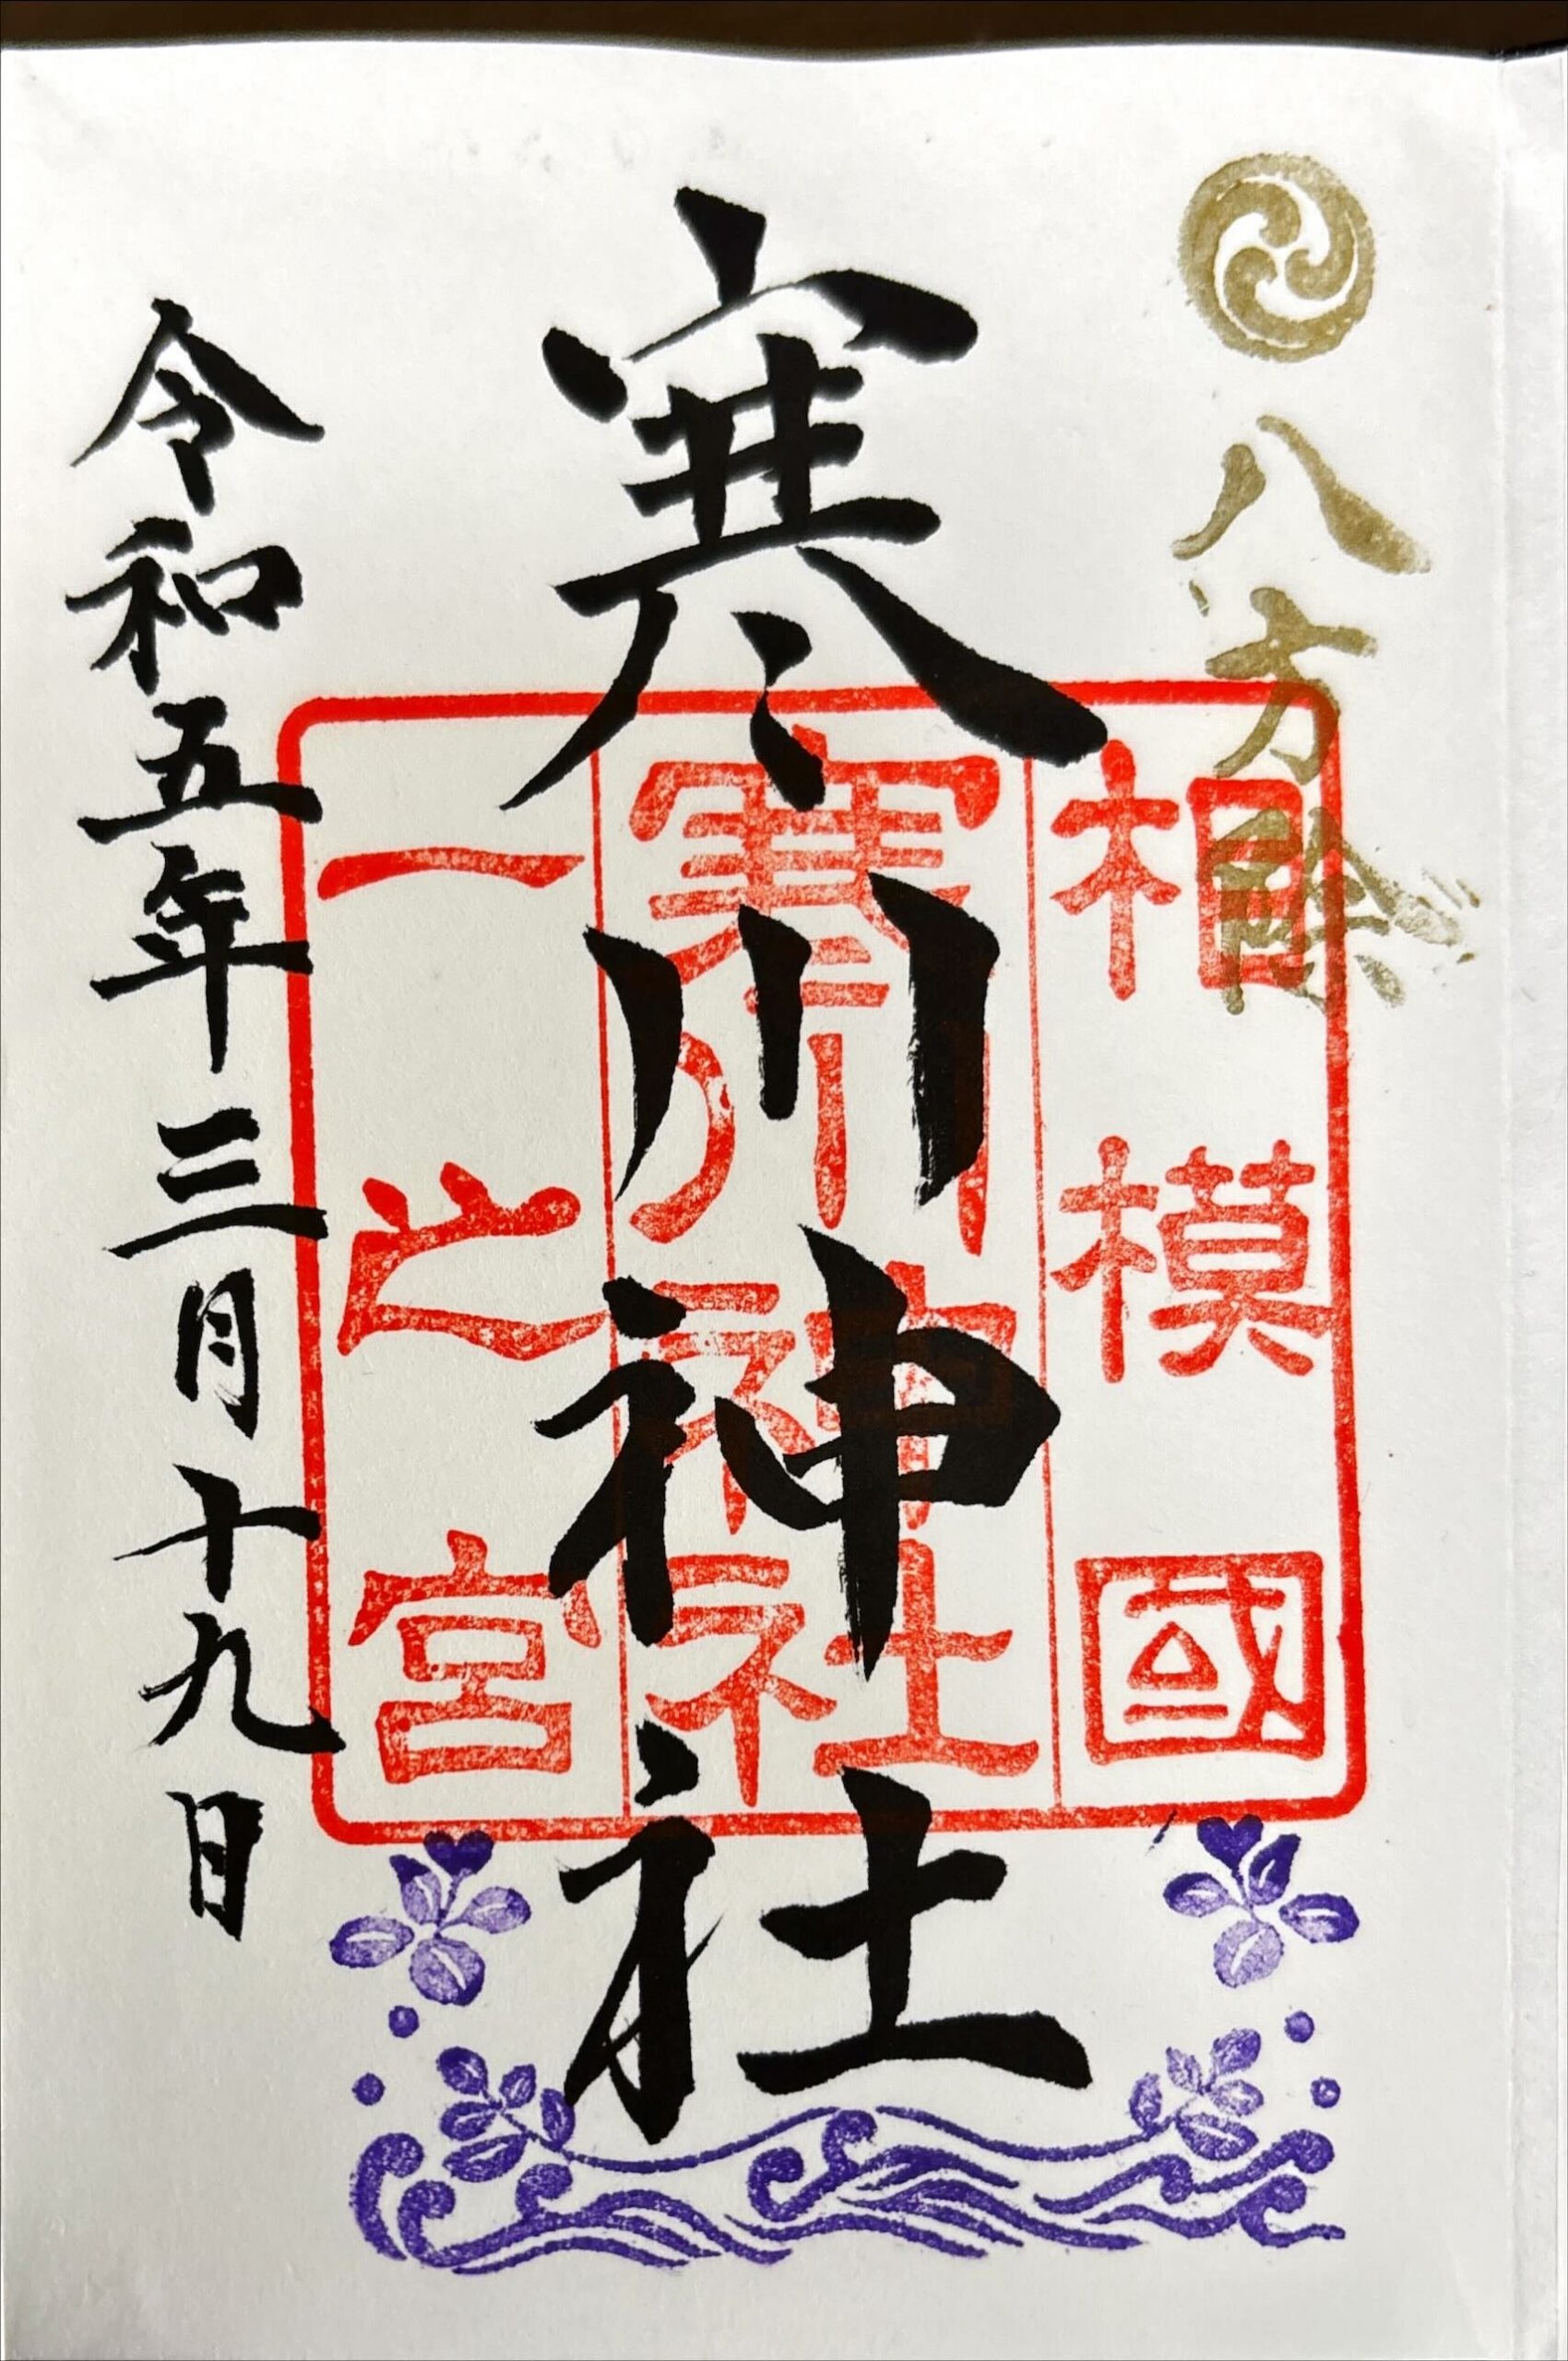 八方除
相模國
寒川神社
一之宮
寒川神社
令和五年三月十九日